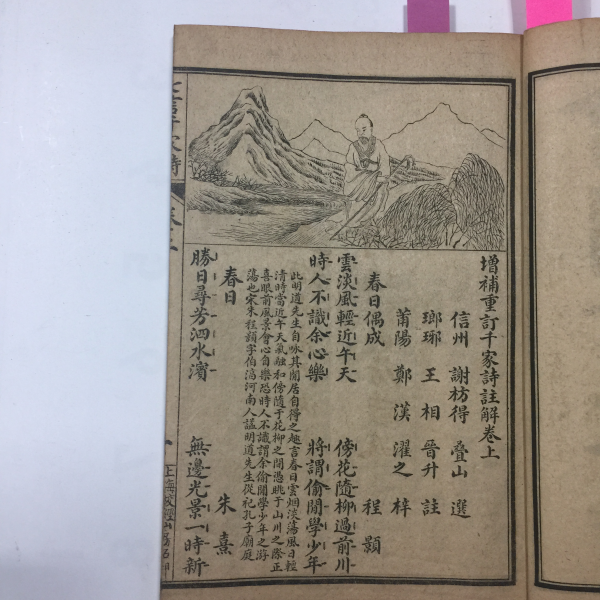 增補重訂千家詩註解卷上
信州 謝枋得 疊山 選
瑯琊 王相 晉升 註
莆陽 鄭漢 濯之 梓
春日偶成 程顥
雲淡風輕近午天 傍花隨柳過前川
時人不識余心樂 將謂偷閒學少年
此明道先生自咏其閒居自得之趣言春日雲烟淡蕩風日輕
清時當近午天氣融和傍隨于花柳之間憑眺于山川之際正
喜眼前風景會心自樂恐時人不識謂余偷閒學少年之游
蕩也宋朱程顥字伯淳河南人諡明道先生從祀孔子廟庭
春日 朱熹
勝日尋芳泗水濱 無邊光景一時新
千家詩